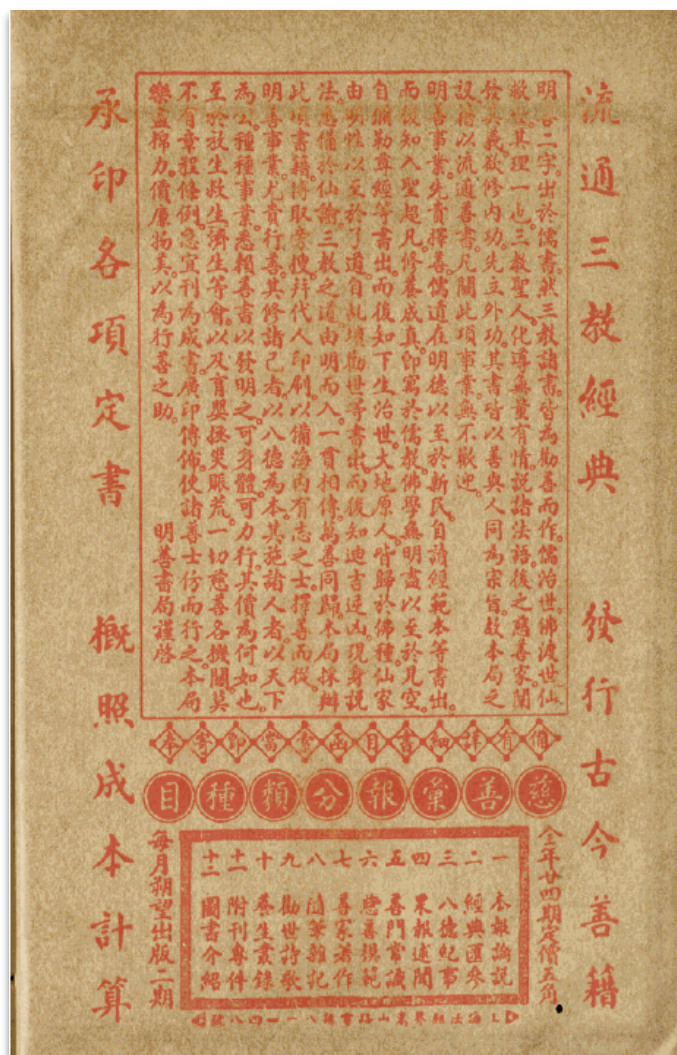 流通三教經典 發行古今善籍
明善二字。出於儒書。然三教諸書。皆為勸善而作。儒治世。佛渡世。仙
救世。其理一也。三教聖人。化導無量有情。說諸法語。後之慈善家。闡
發其義。欲修內功。先立外功。其書皆以善與人同為宗旨。故本局之
設。藉以流通善書。凡關此項事業。無不歡迎。
明善事業。先貴擇善。儒道在明德以至於新民。自讀經範本等書出。
而後知入聖超凡。修養成真。即寓於儒教。佛學無明盡以至於見空。
自彌勒尊經等書出。而後知下生治世。大地原人。皆歸於佛種。仙家
由明性以至於了道。自乩壇勸世等書出。而後知迪吉逆凶。現身說
法。悉備於仙諭。三教之道。由明而入。一貫相傳。萬善同歸。本局採辦
此項書籍。博取旁搜。并代人印刷。以備海內有志之士。擇善而從。
明善事業。尤貴行善。其修諸己者。以八德為本。其施諸人者。以天下
為公。種種事業。悉賴善書以發明之。可身體。可力行。其價為何如也。
至於放生救生濟生等會。以及育嬰拯災賑荒。一切慈善各機關。莫
不有章程條例。急宜刊為成書。廣印傳佈。使諸善士仿而行之。本局
樂盡棉力。價廉物美。以為行善之助。 明善書局謹啓
承印各項定書 概照成本計算
備有詳細書目函索當即寄奉
慈善彙報分類種目
全年廿四期定價五角
一 本報論說
二 經典匯參
三 八德紀事
四 果報述聞
五 善門常識
六 慈善模範
七 善家若作
八 隨筆雜記
九 勸世詩歌
十 養生叢錄
十一 附刊專件
十二 圖書介紹
每月朔望出版二期